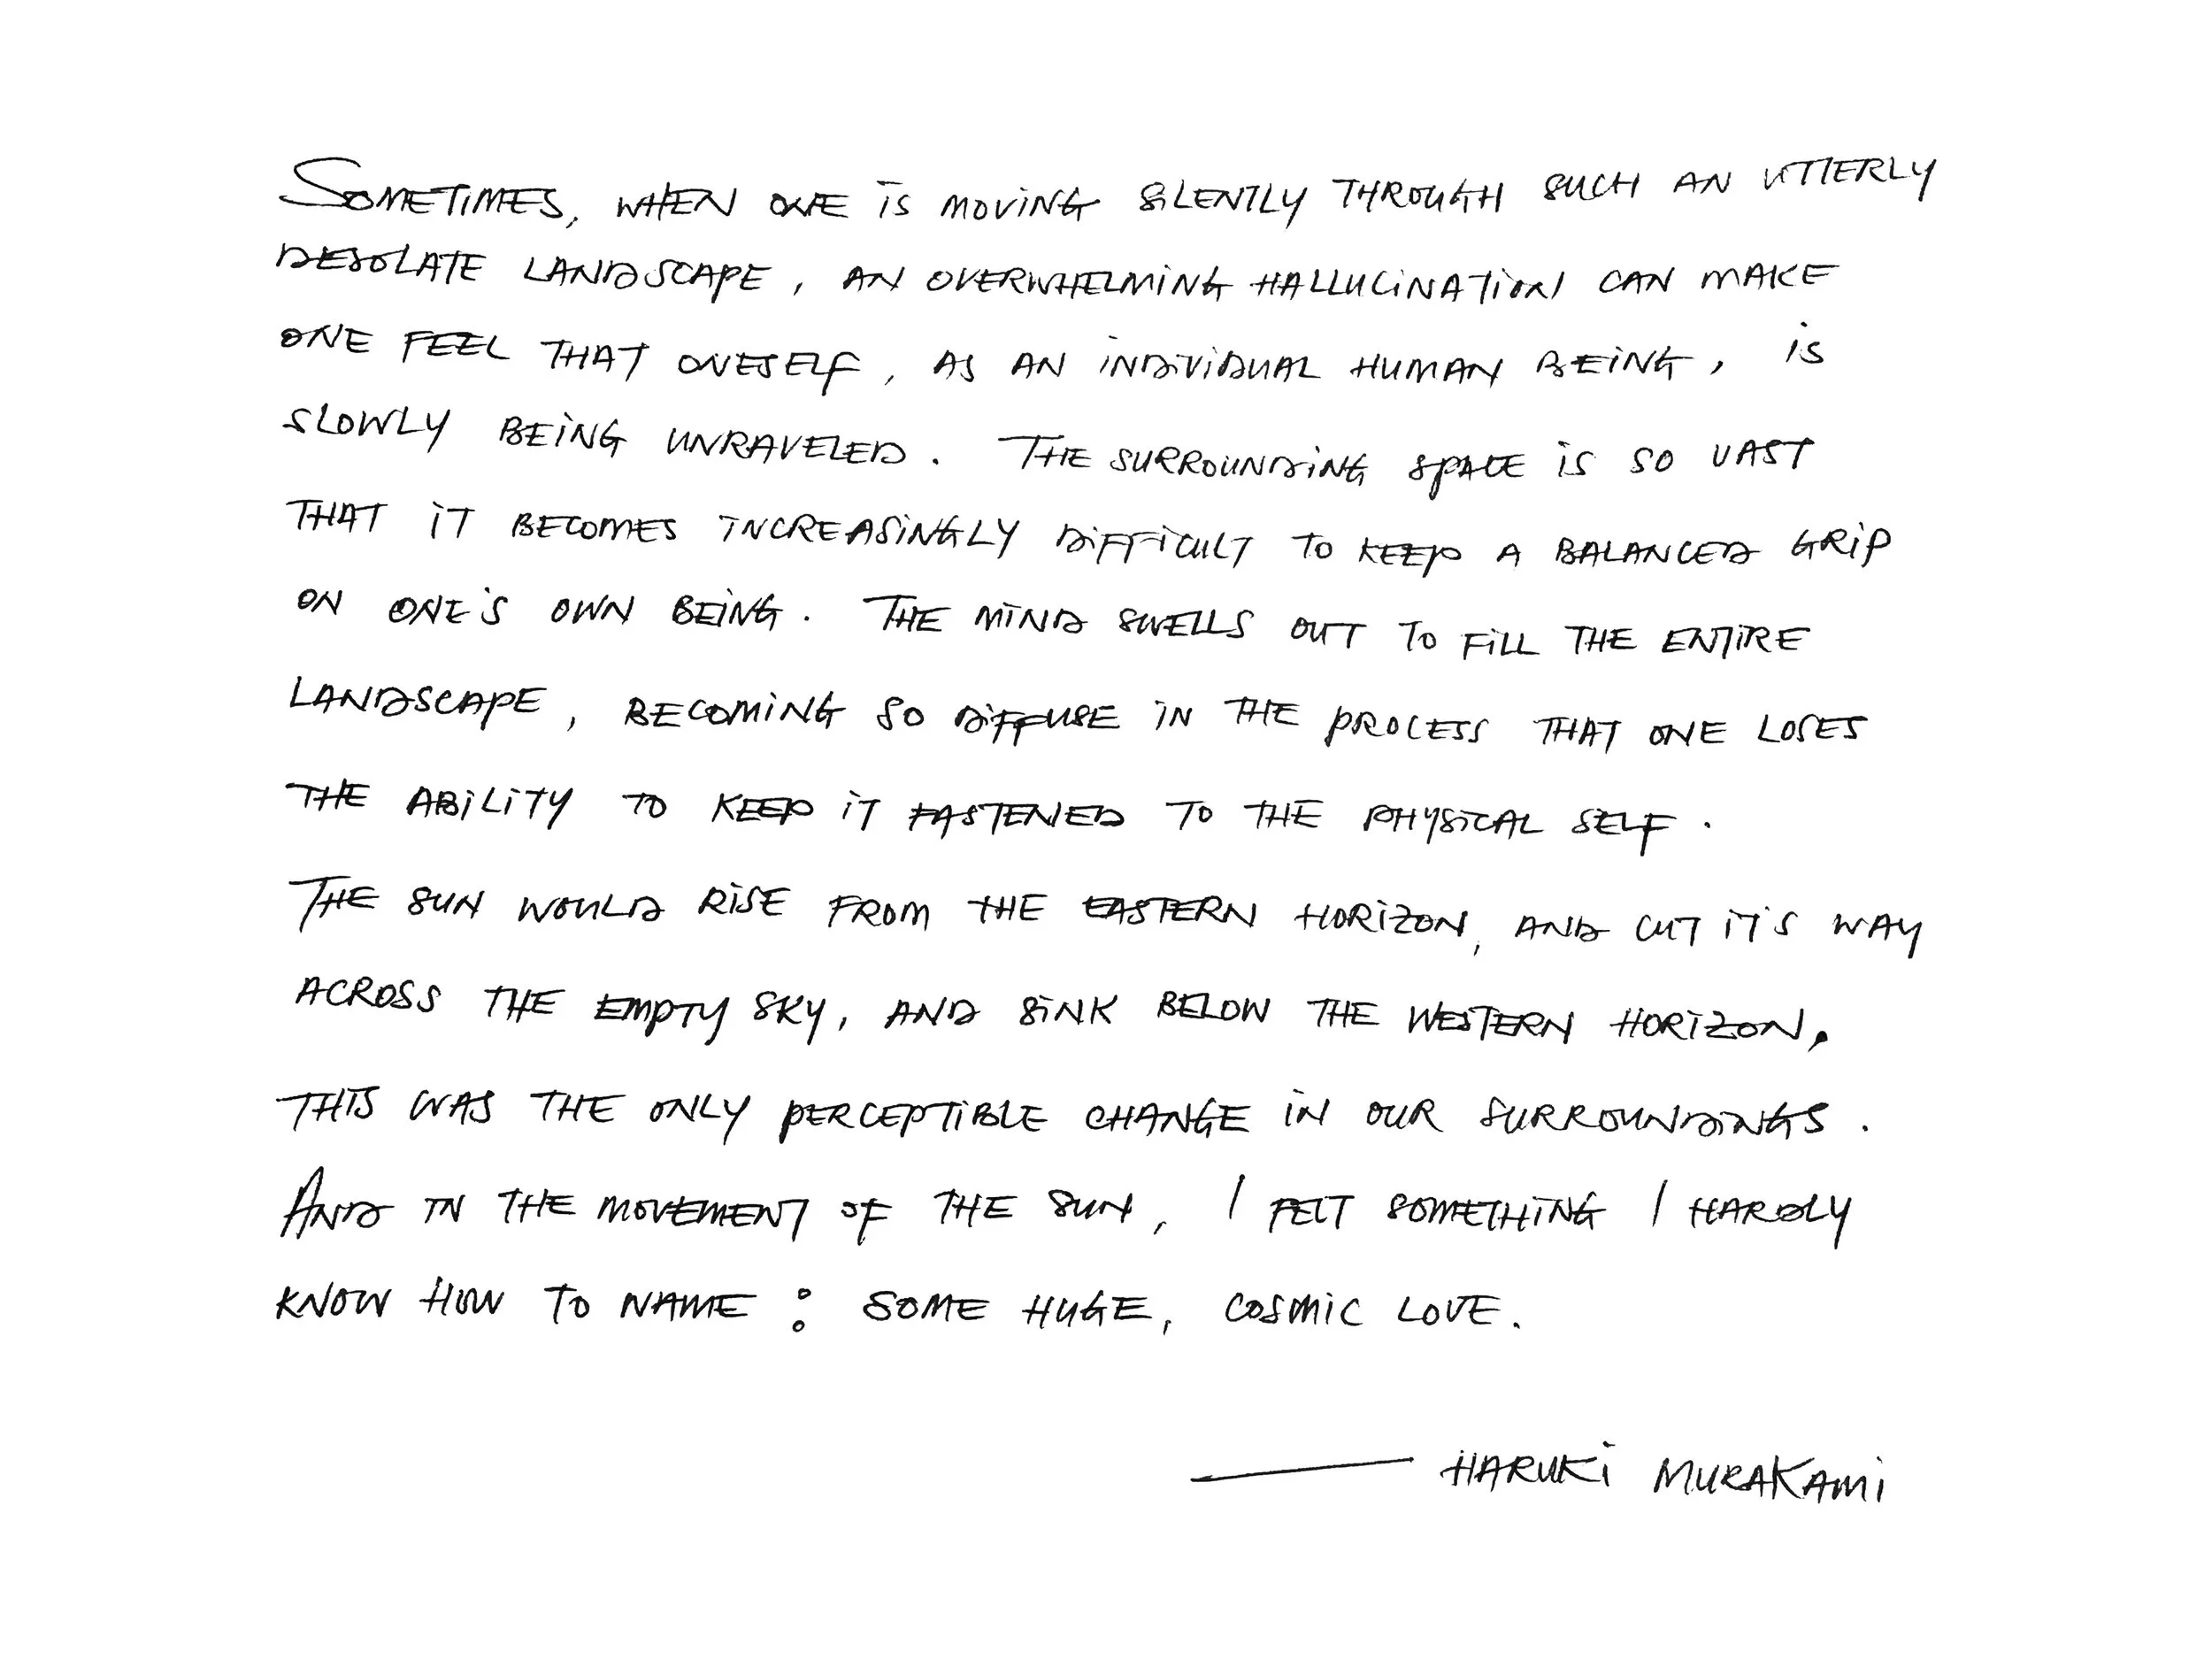 SOMETIMES, WHEN ONE IS MOVING SILENTLY THROUGH SUCH AN UTTERLY
DESOLATE LANDSCAPE, AN OVERWHELMING HALLUCINATION CAN MAKE
ONE FEEL THAT ONESELF, AS AN INDIVIDUAL HUMAN BEING, IS
SLOWLY BEING UNRAVELED. THE SURROUNDING SPACE IS SO VAST
THAT IT BECOMES INCREASINGLY DIFFICULT TO KEEP A BALANCED GRIP
ON ONE'S OWN BEING. THE MIND SWELLS OUT TO FILL THE ENTIRE
LANDSCAPE, BECOMING SO DIFFUSE IN THE PROCESS THAT ONE LOSES
THE ABILITY TO KEEP IT FASTENED TO THE PHYSICAL SELF.
THE SUN WOULD RISE FROM THE EASTERN HORIZON, AND CUT IT'S WAY
ACROSS THE EMPTY SKY, AND SINK BELOW THE WESTERN HORIZON.
THIS WAS THE ONLY PERCEPTIBLE CHANGE IN OUR SURROUNDINGS.
AND IN THE MOVEMENT OF THE SUN, I FELT SOMETHING I HARDLY
KNOW HOW TO NAME: SOME HUGE, COSMIC LOVE.
— HARUKI MURAKAMI